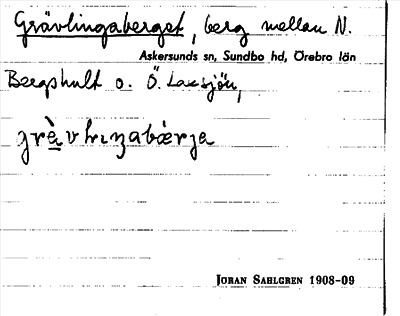 Grävlingaberget, berg mellan N.
Askersunds sn, Sundbo hd, Örebro län
Bergshult o. Ö. Laxsjön,
JÖRAN SAHLGREN 1908-09